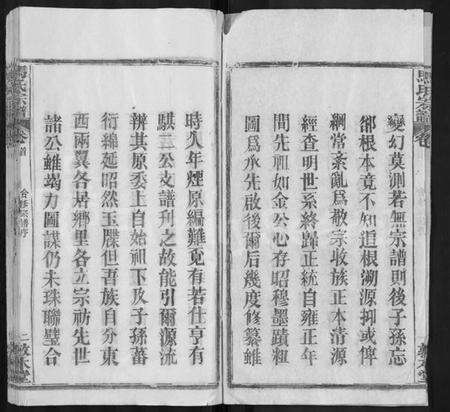 變幻莫測若無宗譜則後子孫忘
卻根本竟不知道根溯源抑或俾
綱常紊亂爲敬宗收族正本清源
經查明世系終歸正統自雍正年
間先祖如金公心存昭穆墨蹟粗
圖爲承先啟後爾后幾度修纂雖
時久年煙原編難覓有若仕亨有
騏三公支譜刋之故能引爾源流
辨其原委上自始祖下及子孫蕃
衍綿延昭然玉牒但吾族自分東
西兩翼各居鄉里各立宗祊先世
諸公雖竭力圖謀仍未珠聯璧合
馬氏宗譜
卷首
合修宗譜序
二
馬氏宗譜
卷